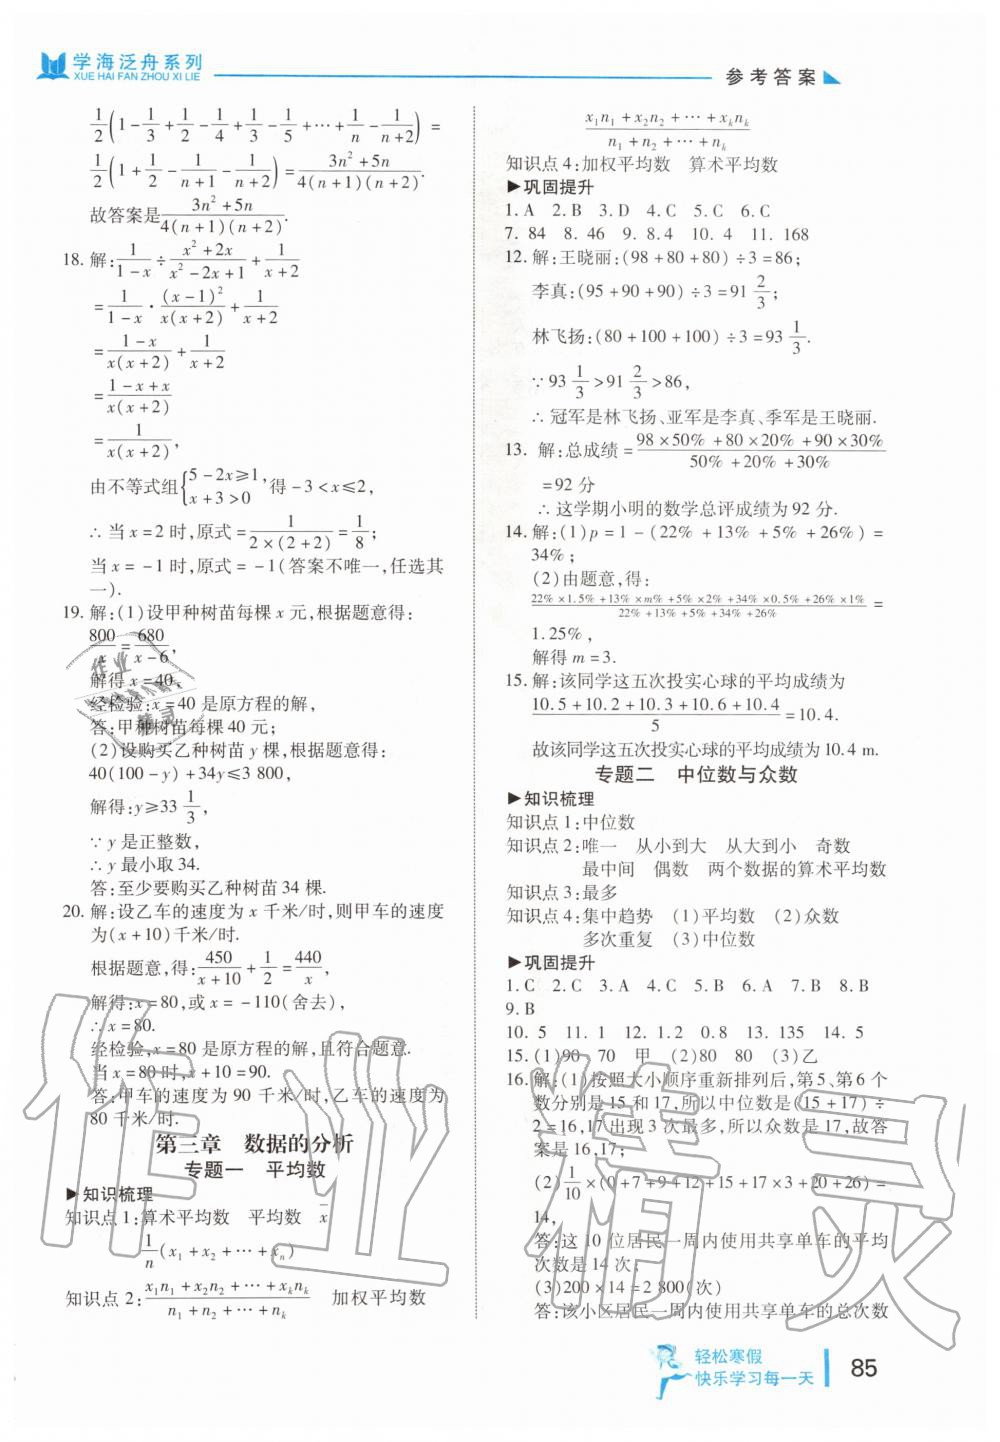 学海泛舟系列
XUE HAI FAN ZHOU XI LIE
参考答案
1/2(1-1/3+1/2-1/4+1/3-1/5+…+1/n-1/(n+2))=
1/2(1+1/2-1/(n+1)-1/(n+2))=(3n²+5n)/(4(n+1)(n+2)).
故答案是(3n²+5n)/(4(n+1)(n+2)).
18. 解:1/(1-x)÷(x²+2x)/(x²-2x+1)+1/(x+2)
=1/(1-x)·(x-1)²/(x(x+2))+1/(x+2)
=(1-x)/(x(x+2))+1/(x+2)
=(1-x+x)/(x(x+2))
=1/(x(x+2)),
由不等式组{5-2x≥1, x+3>0 得-3<x≤2,
∴当x=2时,原式=1/(2×(2+2))=1/8;
当x=-1时,原式=-1(答案不唯一,任选其
一).
19. 解:(1)设甲种树苗每棵x元,根据题意得:
800/x=680/(x-6),
解得x=40,
经检验:x=40是原方程的解,
答:甲种树苗每棵40元;
(2)设购买乙种树苗y棵,根据题意得:
40(100-y)+34y≤3 800,
解得:y≥33 1/3,
∵y是正整数,
∴y最小取34.
答:至少要购买乙种树苗34棵.
20. 解:设乙车的速度为x千米/时,则甲车的速度
为(x+10)千米/时.
根据题意,得:450/(x+10)+1/2=440/x,
解得:x=80,或x=-110(舍去),
∴x=80.
经检验,x=80是原方程的解,且符合题意.
当x=80时,x+10=90.
答:甲车的速度为90千米/时,乙车的速度为
80千米/时.
第三章 数据的分析
专题一 平均数
▶知识梳理
知识点1:算术平均数 平均数 x̄
1/n(x₁+x₂+…+xₙ)
知识点2:(x₁n₁+x₂n₂+…+xₖnₖ)/(n₁+n₂+…+nₖ) 加权平均数
(x₁n₁+x₂n₂+…+xₖnₖ)/(n₁+n₂+…+nₖ)
知识点4:加权平均数 算术平均数
▶巩固提升
1. A 2. B 3. D 4. C 5. C 6. C
7. 84 8. 46 9. 8.4 10. 4 11. 168
12. 解:王晓丽:(98+80+80)÷3=86;
李真:(95+90+90)÷3=91 2/3;
林飞扬:(80+100+100)÷3=93 1/3.
∵93 1/3>91 2/3>86,
∴冠军是林飞扬、亚军是李真、季军是王晓丽.
13. 解:总成绩=(98×50%+80×20%+90×30%)/(50%+20%+30%)
=92分
∴这学期小明的数学总评成绩为92分.
14. 解:(1)p=1-(22%+13%+5%+26%)=
34%;
(2)由题意,得:
(22%×1.5%+13%×m%+5%×2%+34%×0.5%+26%×1%)/(22%+13%+5%+34%+26%)=
1.25%,
解得m=3.
15. 解:该同学这五次投实心球的平均成绩为
(10.5+10.2+10.3+10.6+10.4)/5=10.4.
故该同学这五次投实心球的平均成绩为10.4 m.
专题二 中位数与众数
▶知识梳理
知识点1:中位数
知识点2:唯一 从小到大 从大到小 奇数
最中间 偶数 两个数据的算术平均数
知识点3:最多
知识点4:集中趋势 (1)平均数 (2)众数
多次重复 (3)中位数
▶巩固提升
1. C 2. C 3. A 4. C 5. B 6. A 7. B 8. B
9. B
10. 5 11. 1 12. 1.2 0.8 13. 135 14. 5
15. (1)90 70 甲 (2)80 80 (3)乙
16. 解:(1)按照大小顺序重新排列后,第5、第6个
数分别是15和17,所以中位数是(15+17)÷
2=16,17出现3次最多,所以众数是17,故答
案是16,17;
(2)1/10×(0+7+9+12+15+17×3+20+26)=
14,
答:这10位居民一周内使用共享单车的平均
次数是14次;
(3)200×14=2 800(次)
答:该小区居民一周内使用共享单车的总次数
轻松寒假
快乐学习每一天
85
作业精灵